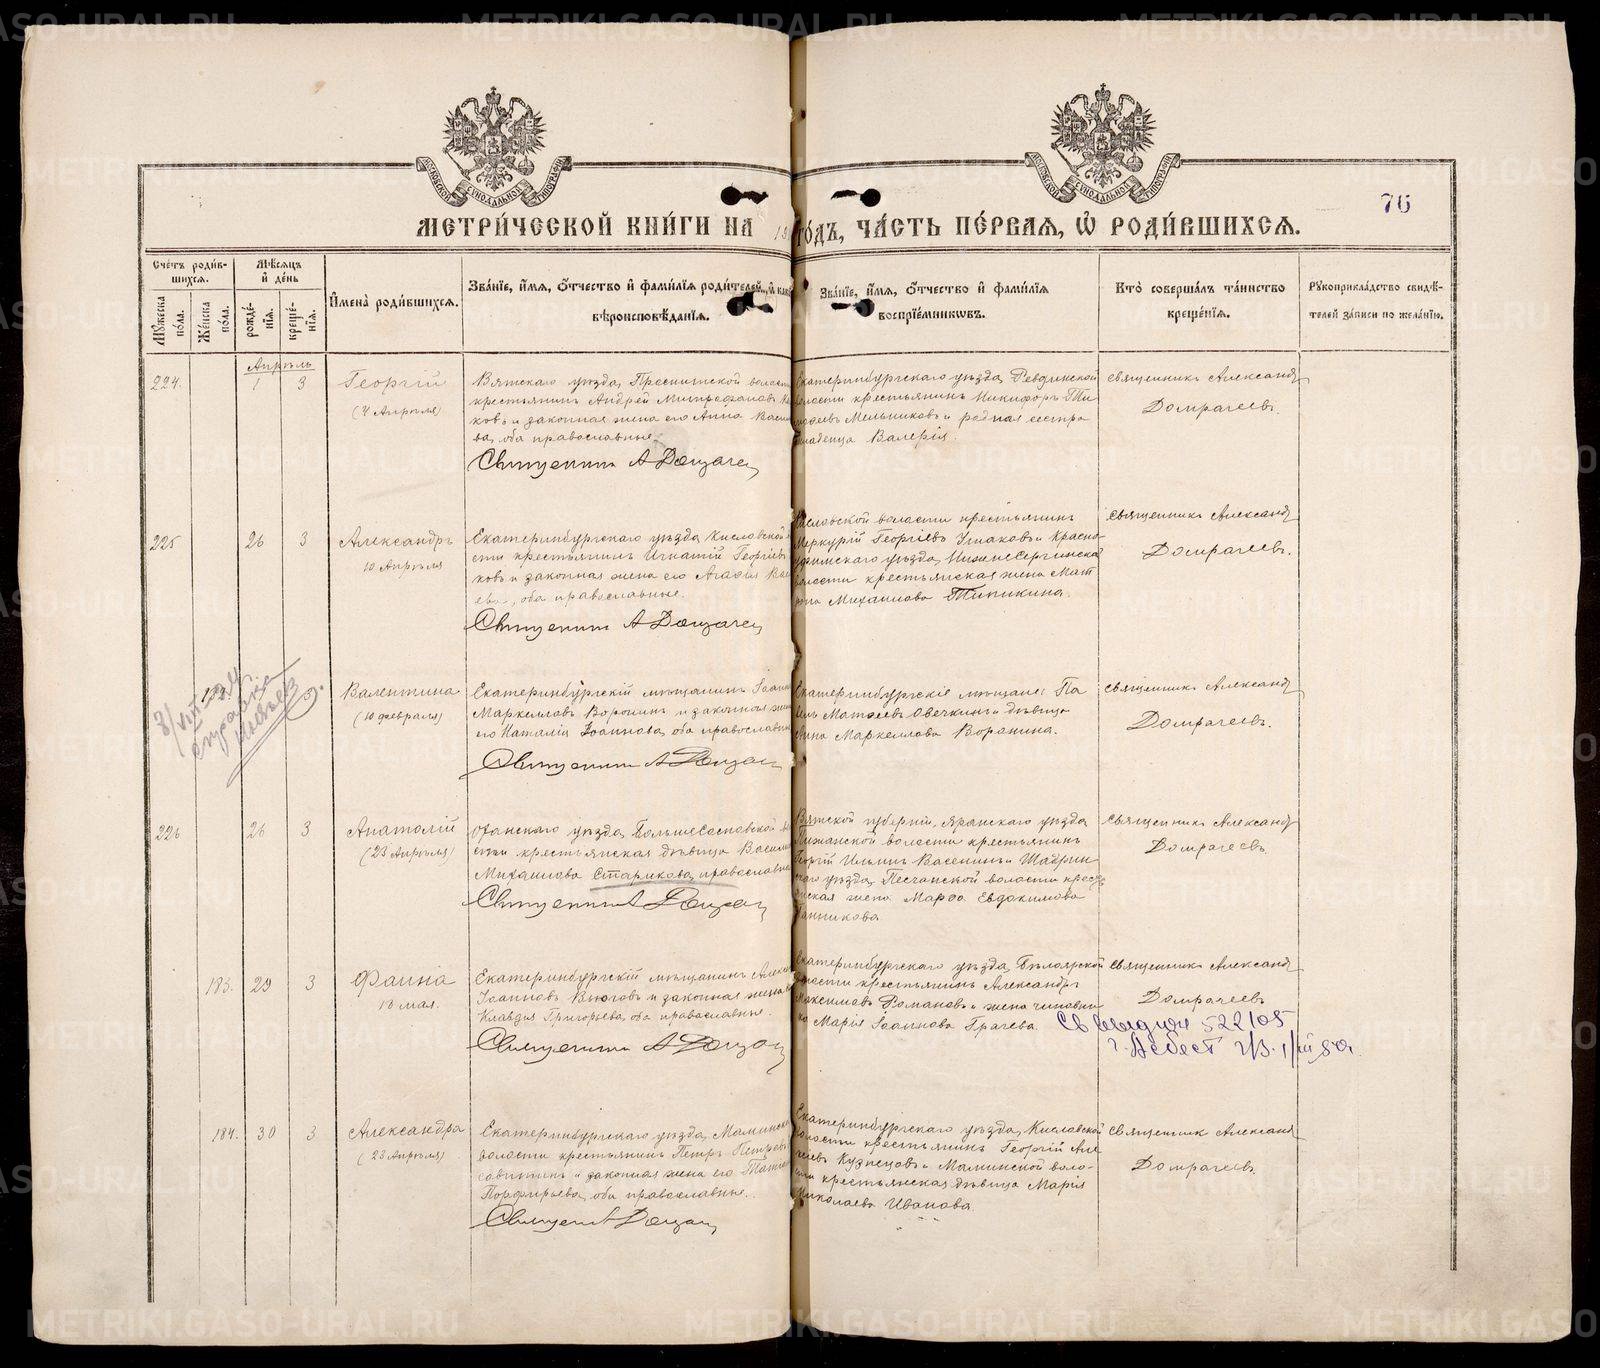 METRIKI.GASO-URAL.RU
МОСКОВСКОЙ СѴНОДАЛЬНОЙ ТИПОГРАФІИ
МОСКОВСКОЙ СѴНОДАЛЬНОЙ ТИПОГРАФІИ
76
МЕТРИ́ЧЕСКОЙ КНИ́ГИ НА ГО́ДЪ, ЧА́СТЬ ПЕ́РВАЯ, Ѡ҆ РОДИ́ВШИХСЯ.
Сче́тъ роди́вшихся.
Мꙋ́жеска по́ла.
Же́нска по́ла.
Мѣ́сяцъ и҆ де́нь
рожде́нїя.
креще́нїя.
И҆мена̀ роди́вшихся.
Зва́нїе, и҆́мя, ѻ҆́тчество и҆ фами́лїя роди́телей, и҆
вѣроисповѣ́данїя.
Зва́нїе, и҆́мя, ѻ҆́тчество и҆ фами́лїя
воспрїе́мникѡвъ.
Кто̀ соверша́лъ та́инство
креще́нїя.
Рꙋкоприкла́дство свидѣ́телей за́писи по жела́нїю.
Апрѣль
224. 1 3 Георгій
(4 Апрѣля)
Вятскаго уѣзда,
крестьянинъ Андрей Митрофановъ
ковъ и законная жена его Анна
ва, оба православные.
Священникъ А Домрачев
Екатеринбургскаго уѣзда, Ревдинской
волости крестьянинъ Никифоръ
Мельниковъ и родная сестра
младенца Валерія.
Священникъ Александръ
Домрачеевъ.
225 26 3 Александръ
10 Апрѣля
Екатеринбургскаго уѣзда Кисловской
сти крестьянинъ Игнатій Георгіевъ
ковъ и законная жена его Агафія
ева, оба православные.
Священникъ А Домрачев
Кисловской волости крестьянинъ
Меркурій Георгіевъ Ушаковъ и Красно
уфимскаго уѣзда, НижнеСергинской
волости крестьянская жена Мат
рона Михаилова Типикина.
Священникъ Александръ
Домрачеевъ.
справка
182. Валентина
(10 февраля)
Екатеринбургскій мѣщанинъ Іоаннъ
Маркелловъ Воронинъ и законная жена
его Наталія Іоаннова, оба православные
Священникъ А Домрач
Екатеринбургскіе мѣщане: Па
велъ Матѳеевъ Овечкинъ и дѣвица
Анна Маркеллова Воронина.
Священникъ Александръ
Домрачеевъ.
226 26 3 Анатолій
(23 Апрѣля)
Оханскаго уѣзда, БольшеСосновской во
сти крестьянская дѣвица
Михаилова Старикова, православная
Священникъ А Домрач
Вятской губерніи, Яранскаго уѣзда
волости крестьянинъ
Георгій Ильинъ Васенинъ и Шадрин
скаго уѣзда, Песчанской волости кресть
янская жена Марѳа Евдокимова
Священникъ Александръ
Домрачеевъ.
183. 29 3 Фаина
18 мая.
Екатеринбургскій мѣщанинъ
Іоанновъ Вьюговъ и законная жена
Клавдія Григорьева, оба православные.
Священникъ А Домрач
Екатеринбургскаго уѣзда, Бѣлоярской
волости крестьянинъ Александръ
Максимовъ Романовъ и жена чиновни
ка Марія Іоаннова Грачева.
Священникъ Александръ
Домрачеевъ
522105
г. Асбест
184. 30 3 Александра
(23 Апрѣля)
Екатеринбургскаго уѣзда, Маминской
волости крестьянинъ Петръ Петровъ
и законная жена его
Порфирьева, оба православные.
Священник А Домрач
Екатеринбургскаго уѣзда, Кисловской
волости крестьянинъ Георгій
Кузнецовъ и Маминской воло
сти крестьянская дѣвица Марія
Николаева Иванова.
Священник Александръ
Домрачеевъ.